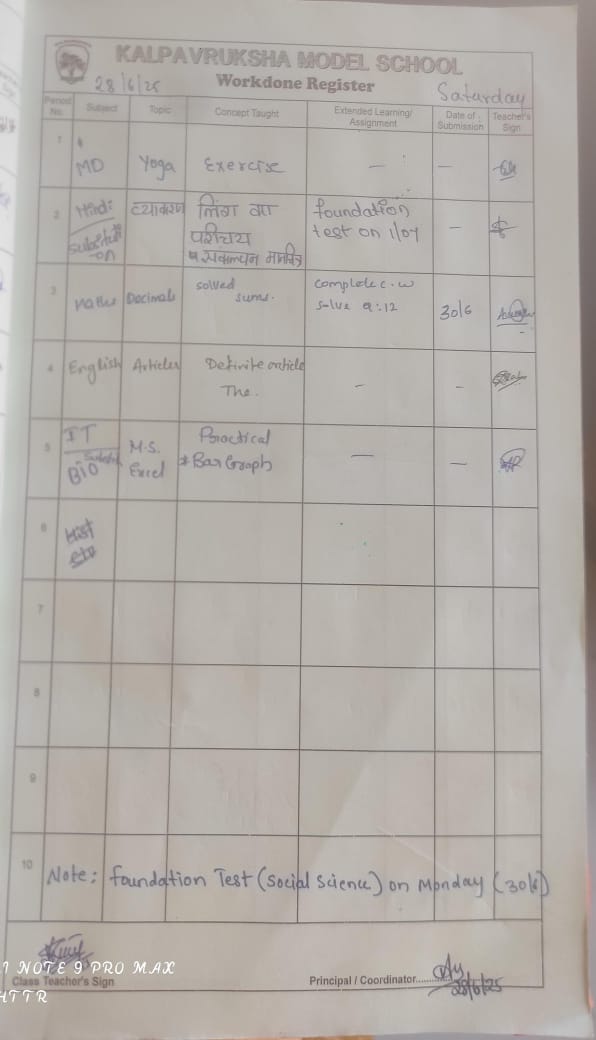 KALPAVRUKSHA MODEL SCHOOL
28/6/25 Workdone Register Saturday
Period No. Subject Topic Concept Taught Extended Learning/ Assignment Date of Submission Teacher's Sign
1 MD Yoga Exercise — —
2 Hindi व्याकरण लिंग का foundation
परिचय test on 1/07 —
3 Maths Decimals solved sums. complete c.w 30/6
solve q:12
4 English Articles Definite article — —
The.
5 IT M.S. Practical — —
BIO Excel * Bar Graph
6 Hist
7
8
9
10 Note: foundation Test (Social Science) on Monday (30/6)
NOTE 9 PRO MAX
Class Teacher's Sign Principal / Coordinator
28/6/25